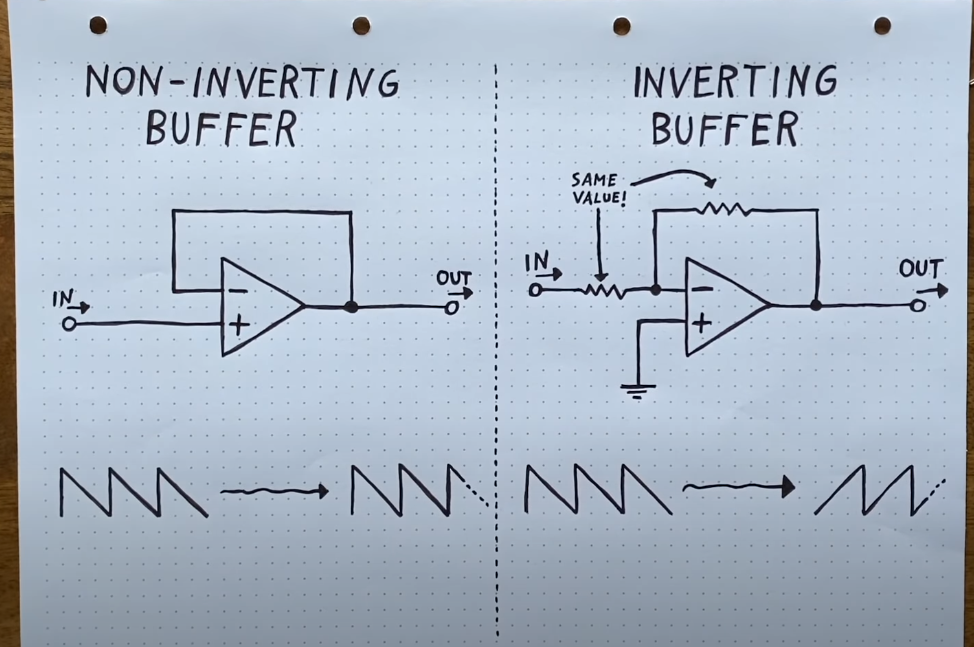 NON-INVERTING
BUFFER
IN
−
+
OUT
INVERTING
BUFFER
SAME
VALUE!
IN
−
+
OUT